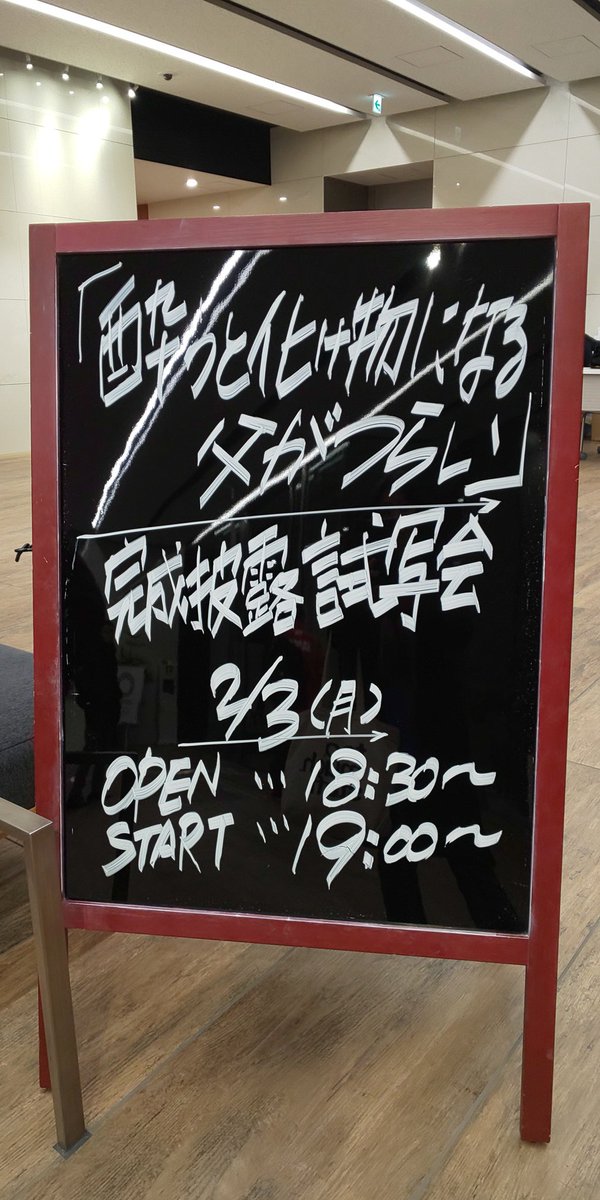 「酔うと化け物になる
父がつらい」
完成披露試写会
2/3(月)
OPEN … 18:30〜
START … 19:00〜